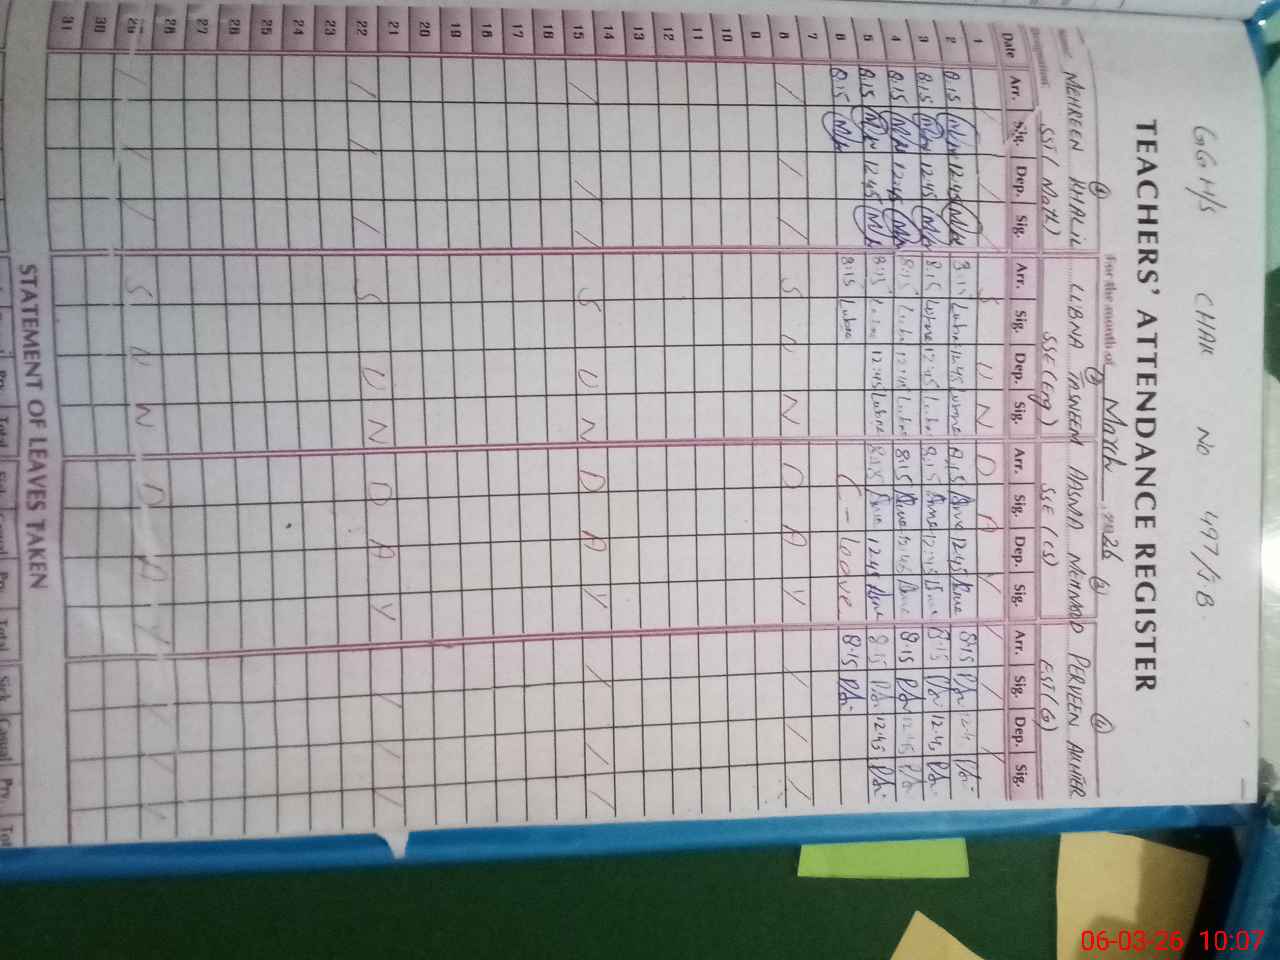 GGH/S CHAK NO 497/JB
TEACHERS' ATTENDANCE REGISTER
For the month of March, 2026
Name MEHREEN KHALIL LUBNA TASNEEM ASMA MEHMOOD PERVEEN AKHTER
Designation SST (Math) SSE (Eng) SSE (CS) EST (G)
Date Arr. Sig. Dep. Sig. Arr. Sig. Dep. Sig. Arr. Sig. Dep. Sig. Arr. Sig. Dep. Sig.
1 S U N D A Y
2 8.15 12.45 8:15 Lubna 12:45 Lubna 8.15 12:45 8.15
3 8.15 12.45 8.15 Lubna 12:45 Lubna 8.15 12:45 8:15 12:45
4 8.15 12:45 8:15 Lubna Lubna 8:15 8:15
5 8.15 12.45 8:15 12:45 Lubna 8:15 12:45 8:15 12:45
6 8.15 8:15 Lubna C - leave 8.15
7
8 S U N D A Y
9
10
11
12
13
14
15 S U N D A Y
16
17
18
19
20
21
22 S U N D A Y
23
24
25
26
27
28
29 S U N D A Y
30
31
STATEMENT OF LEAVES TAKEN
Prv. Total Sick Casual Prv. Total Sick Casual Prv.
06-03-26 10:07